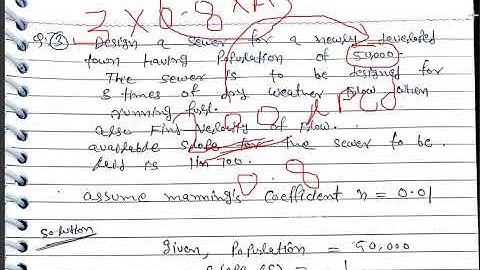 3 X 0.8 X
Q.③. Design a sewer for a newly developed
town having Population of 50,000.
The sewer is to be designed for
3 times of dry weather flow when
running full.
also Find velocity of flow.
available slope for the sewer to be
laid is 1 in 700.
0.8
assume manning's coefficient n = 0.01
solution
Given, Population = 50,000